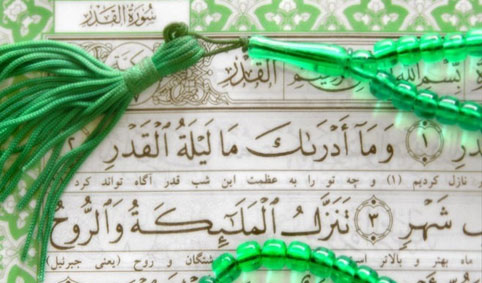 سُورَةُ القَدْرِ
القَدْرِ بِسْمِ اللهِ
دْرِ ﴿١﴾ وَمَآ أَدْرَىٰكَ مَا لَيْلَةُ الْقَدْرِ ﴿٢
نازل کردیم (۱) و چه تو را به عظمت این شب قدر آگاه تواند کرد
شَهْرٍ ﴿٣﴾ تَنَزَّلُ الْمَلَـٰٓئِكَةُ وَالرُّوحُ
ماه بهتر و بالاتر است شتگان و روح (یعنی جبرئیل)